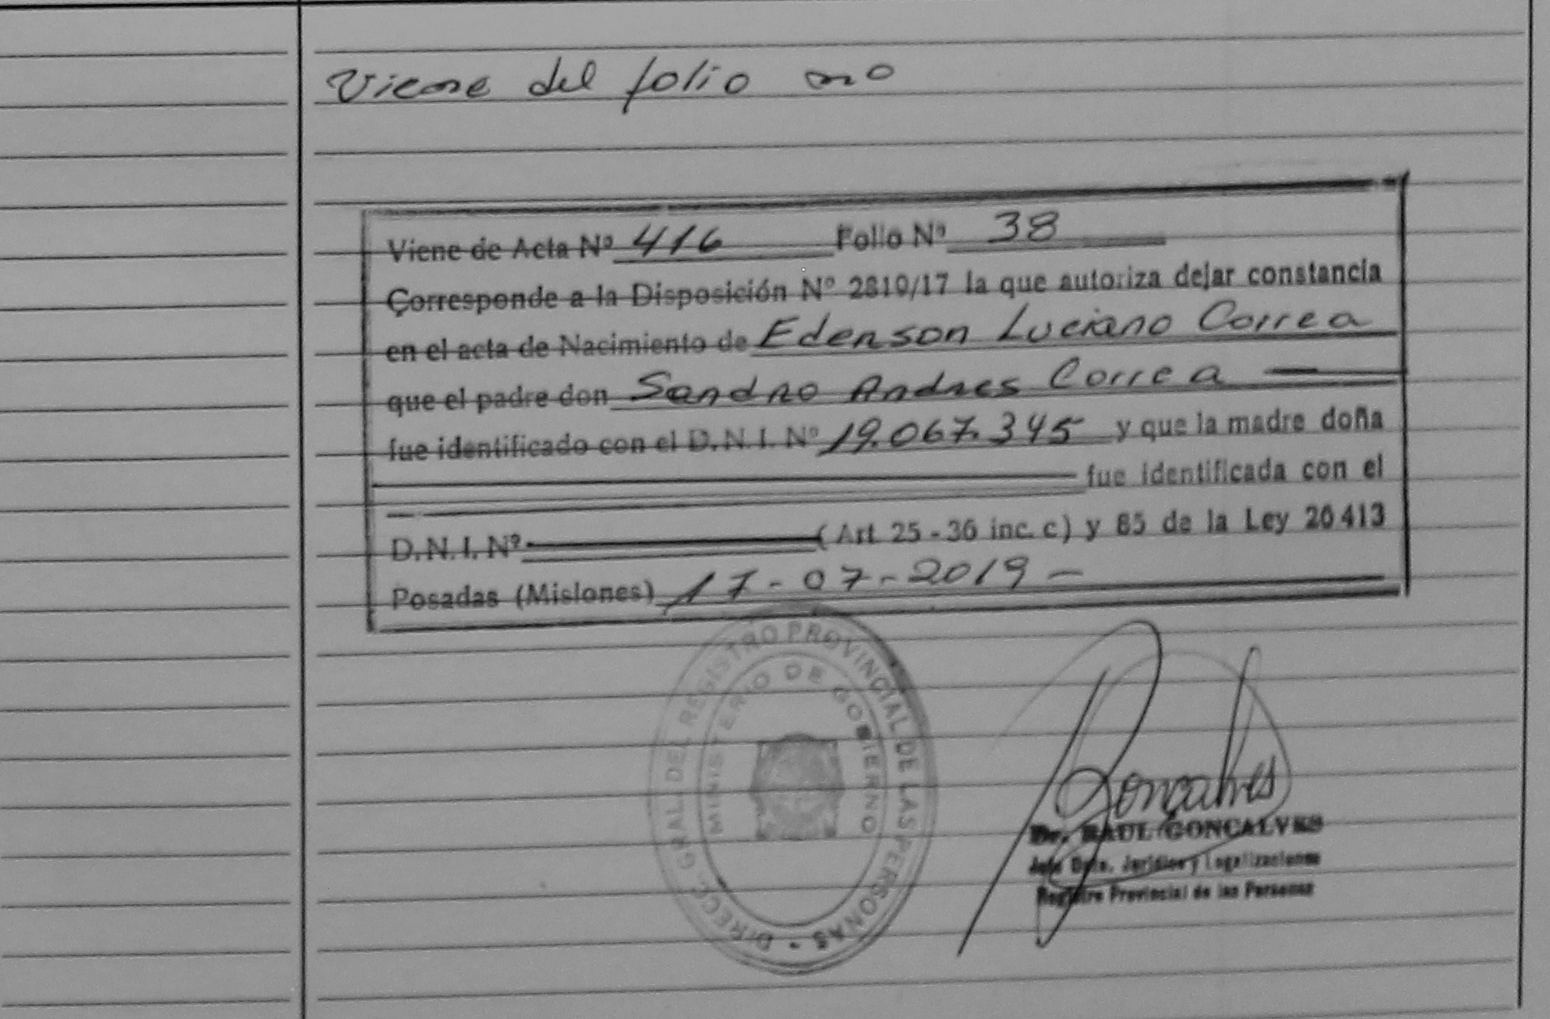 Viene del folio
Viene de Acta Nº 416 Folio Nº 38
Corresponde a la Disposición Nº 2810/17 la que autoriza dejar constancia
en el acta de Nacimiento de Edenson Luciano Correa
que el padre don Sandro Andres Correa
fue identificado con el D.N.I. Nº 19.067.345 y que la madre doña
fue identificada con el
D.N.I. Nº (Art 25 - 36 inc. c) y 85 de la Ley 26413
Posadas (Misiones) 17-07-2019-
DIRECC. GRAL. DEL REGISTRO PROVINCIAL DE LAS PERSONAS -
MINISTERIO DE GOBIERNO
Gonçalves
Dr. RAUL GONCALVES
Jefe Dpto. Jurídico y Legalizaciones
Registro Provincial de las Personas